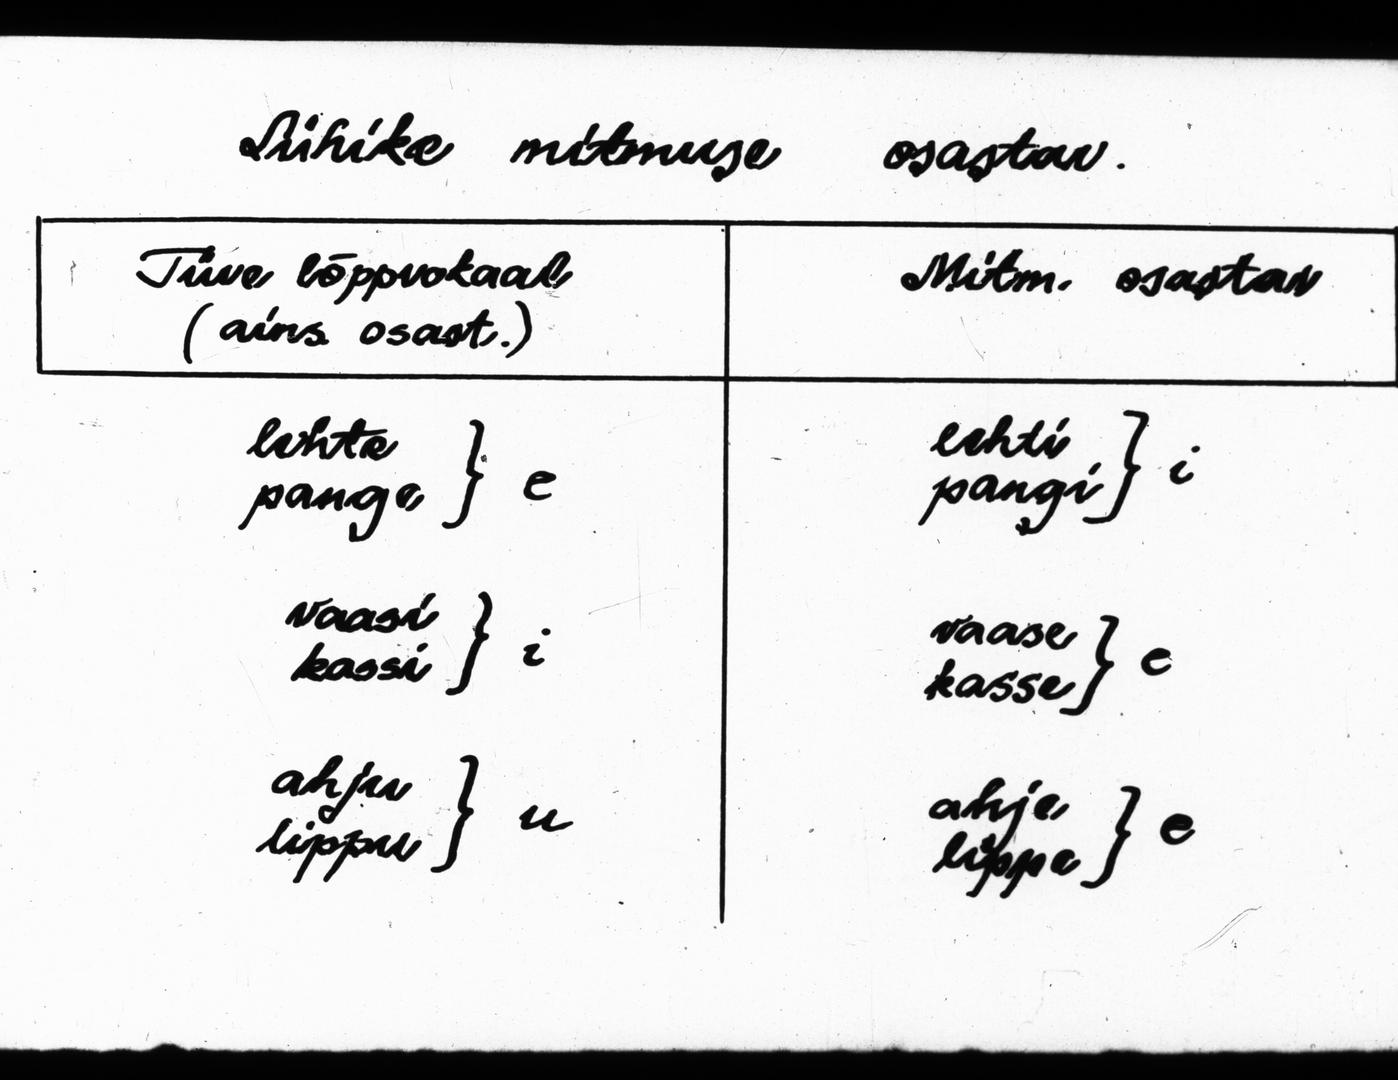 Lühike mitmuse osastav.
Tüve lõppvokaal
(ains. osast.)
Mitm. osastav
lehte
pange
} e
lehti
pangi
} i
vaasi
kassi
} i
vaase
kasse
} e
ahju
lippu
} u
ahje
lippe
} e